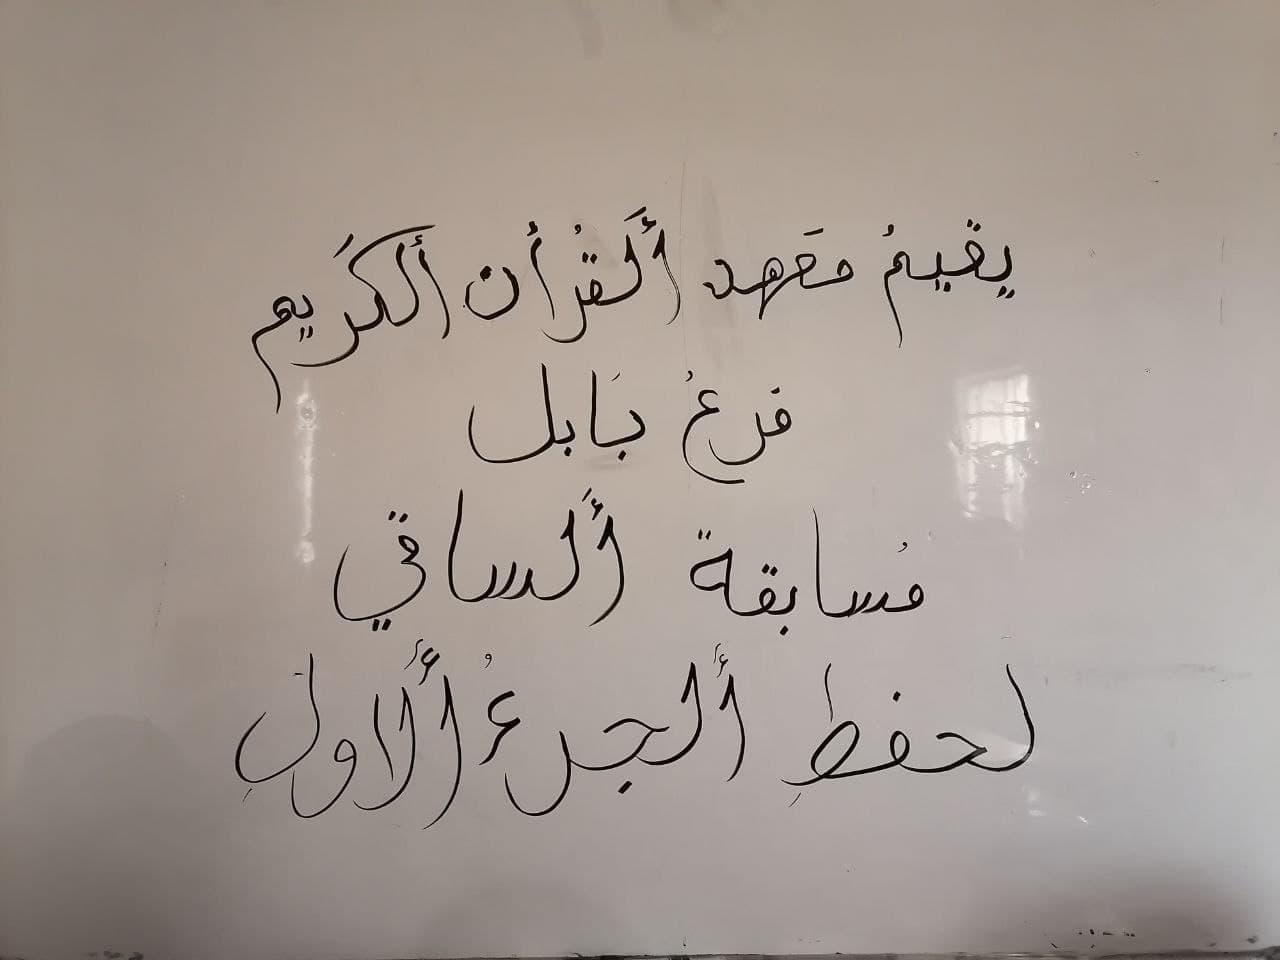 يقيمُ مَعهد أَلقُرأن ألكَريم
فرعُ بَابل
مُسابقة أَلساقي
لحفظِ ألجزءُ ألاولِ